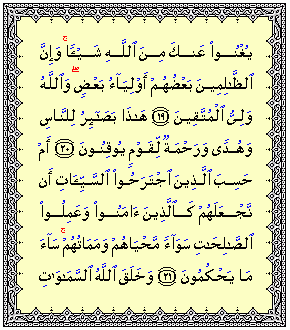 يُغْنُوا۟ عَنكَ مِنَ ٱللَّهِ شَيْـًٔا ۚ وَإِنَّ
ٱلظَّـٰلِمِينَ بَعْضُهُمْ أَوْلِيَآءُ بَعْضٍ ۖ وَٱللَّهُ
وَلِىُّ ٱلْمُتَّقِينَ ﴿١٩﴾ هَـٰذَا بَصَـٰٓئِرُ لِلنَّاسِ
وَهُدًى وَرَحْمَةٌ لِّقَوْمٍ يُوقِنُونَ ﴿٢٠﴾ أَمْ
حَسِبَ ٱلَّذِينَ ٱجْتَرَحُوا۟ ٱلسَّيِّـَٔاتِ أَن
نَّجْعَلَهُمْ كَٱلَّذِينَ ءَامَنُوا۟ وَعَمِلُوا۟
ٱلصَّـٰلِحَـٰتِ سَوَآءً مَّحْيَاهُمْ وَمَمَاتُهُمْ ۚ سَآءَ
مَا يَحْكُمُونَ ﴿٢١﴾ وَخَلَقَ ٱللَّهُ ٱلسَّمَـٰوَٰتِ